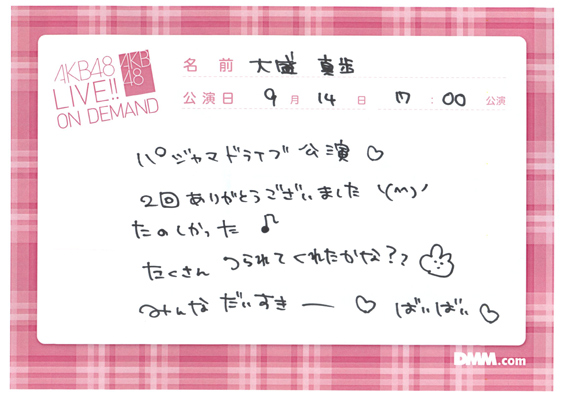 AKB48
LIVE!!
ON DEMAND
AKB
48
名前 大盛 真歩
公演日 9月14日 17:00 公演
パジャマドライブ 公演 ♡
2回ありがとうございました \(m)/
たのしかった ♪
たくさん つられてくれたかな??
みんな だいすき ー ♡ ばいばい ♡
DMM.com